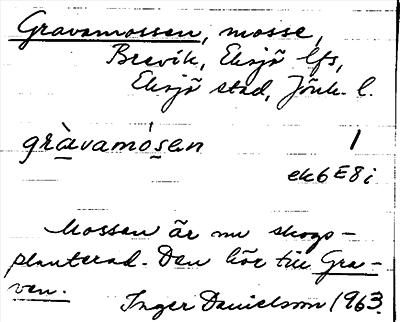 Gravamossen, mosse,
Brevik, Eksjö lfs,
Eksjö stad, Jönk. l.
gràvamósen 1
ek 6E8i
Mossen är nu skogs-
planterad. Den hör till Gra-
ven.
Inger Danielsson 1963.